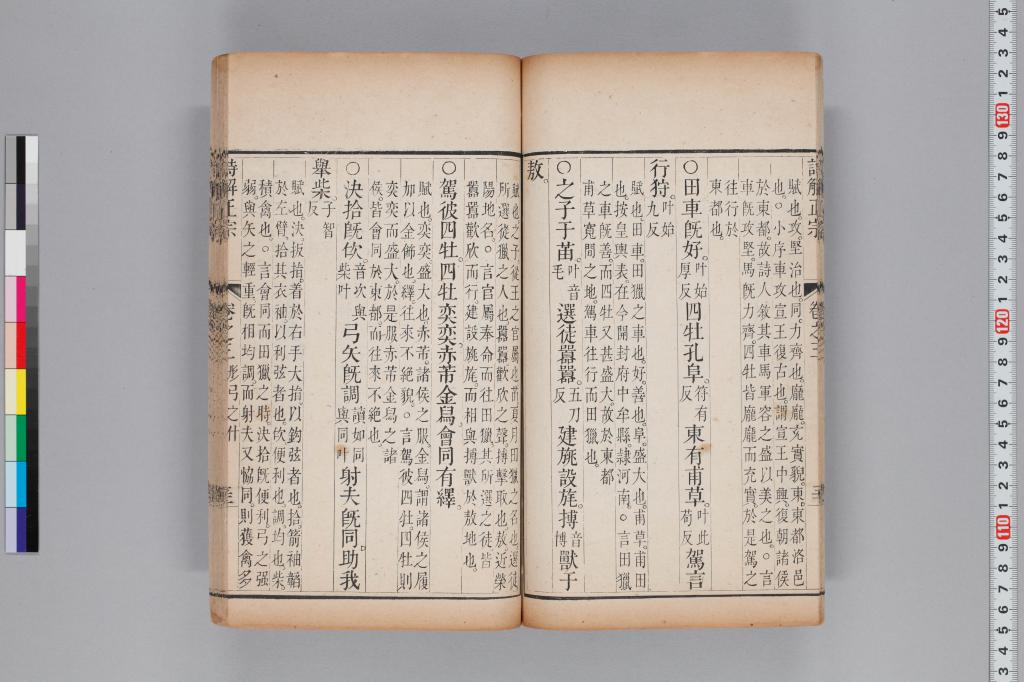 賦也攻堅治也同力齊也龐龐充實貌東東都洛邑
也○小序車攻宣王復古也謂宣王中興復朝諸侯
於東都故詩人敘其車馬軍容之盛以美之也○言
車旣攻堅馬旣力齊四牡皆龐龐而充實於是駕之
往行於
東都也
○田車旣好叶始厚反四牡孔阜符有反東有甫草叶此苟反駕言
行狩叶始九反
賦也田車田獵之車也好善也阜盛大也甫草甫田
也按皇輿表在今開封府中牟縣隷河南○言田獵
之車旣善而四牡又甚盛大故於東都
甫草寬間之地駕車往行而田獵也
○之子于苗叶音毛選徒囂囂五刀反建旐設旄搏音博獸于
敖
賦也之子從王之官屬也苗夏月田獵之名也選徒
所選徒獵之人也囂囂歡欣之聲搏擊取也敖近滎
陽地名○言官屬奉命而往田獵其所選之徒皆
囂囂歡欣而行建設旐旄而相與搏獸於敖地也
○駕彼四牡四牡奕奕赤芾金舄會同有繹
賦也奕奕盛大也赤芾諸侯之服金舄謂諸侯之履
加以金飾也繹往來不絕貌○言駕彼四牡四牡則
奕奕而盛大於是服赤芾金舄之諸
侯皆會同於東都而往來不絕也
○決拾旣佽音次與柴叶弓矢旣調讀如同與同叶射夫旣同助我
舉柴子智反
賦也決扳指著於右手大指以鈎弦者也拾箭袖韝
於左臂拾其衣袖以利弦者也佽便利也調均也柴
積禽也○言會同而田獵之時決拾旣便利弓之强
弱與矢之輕重旣相均調而射夫又恊同則獲禽多
詩解正宗 卷之二 彤弓之什